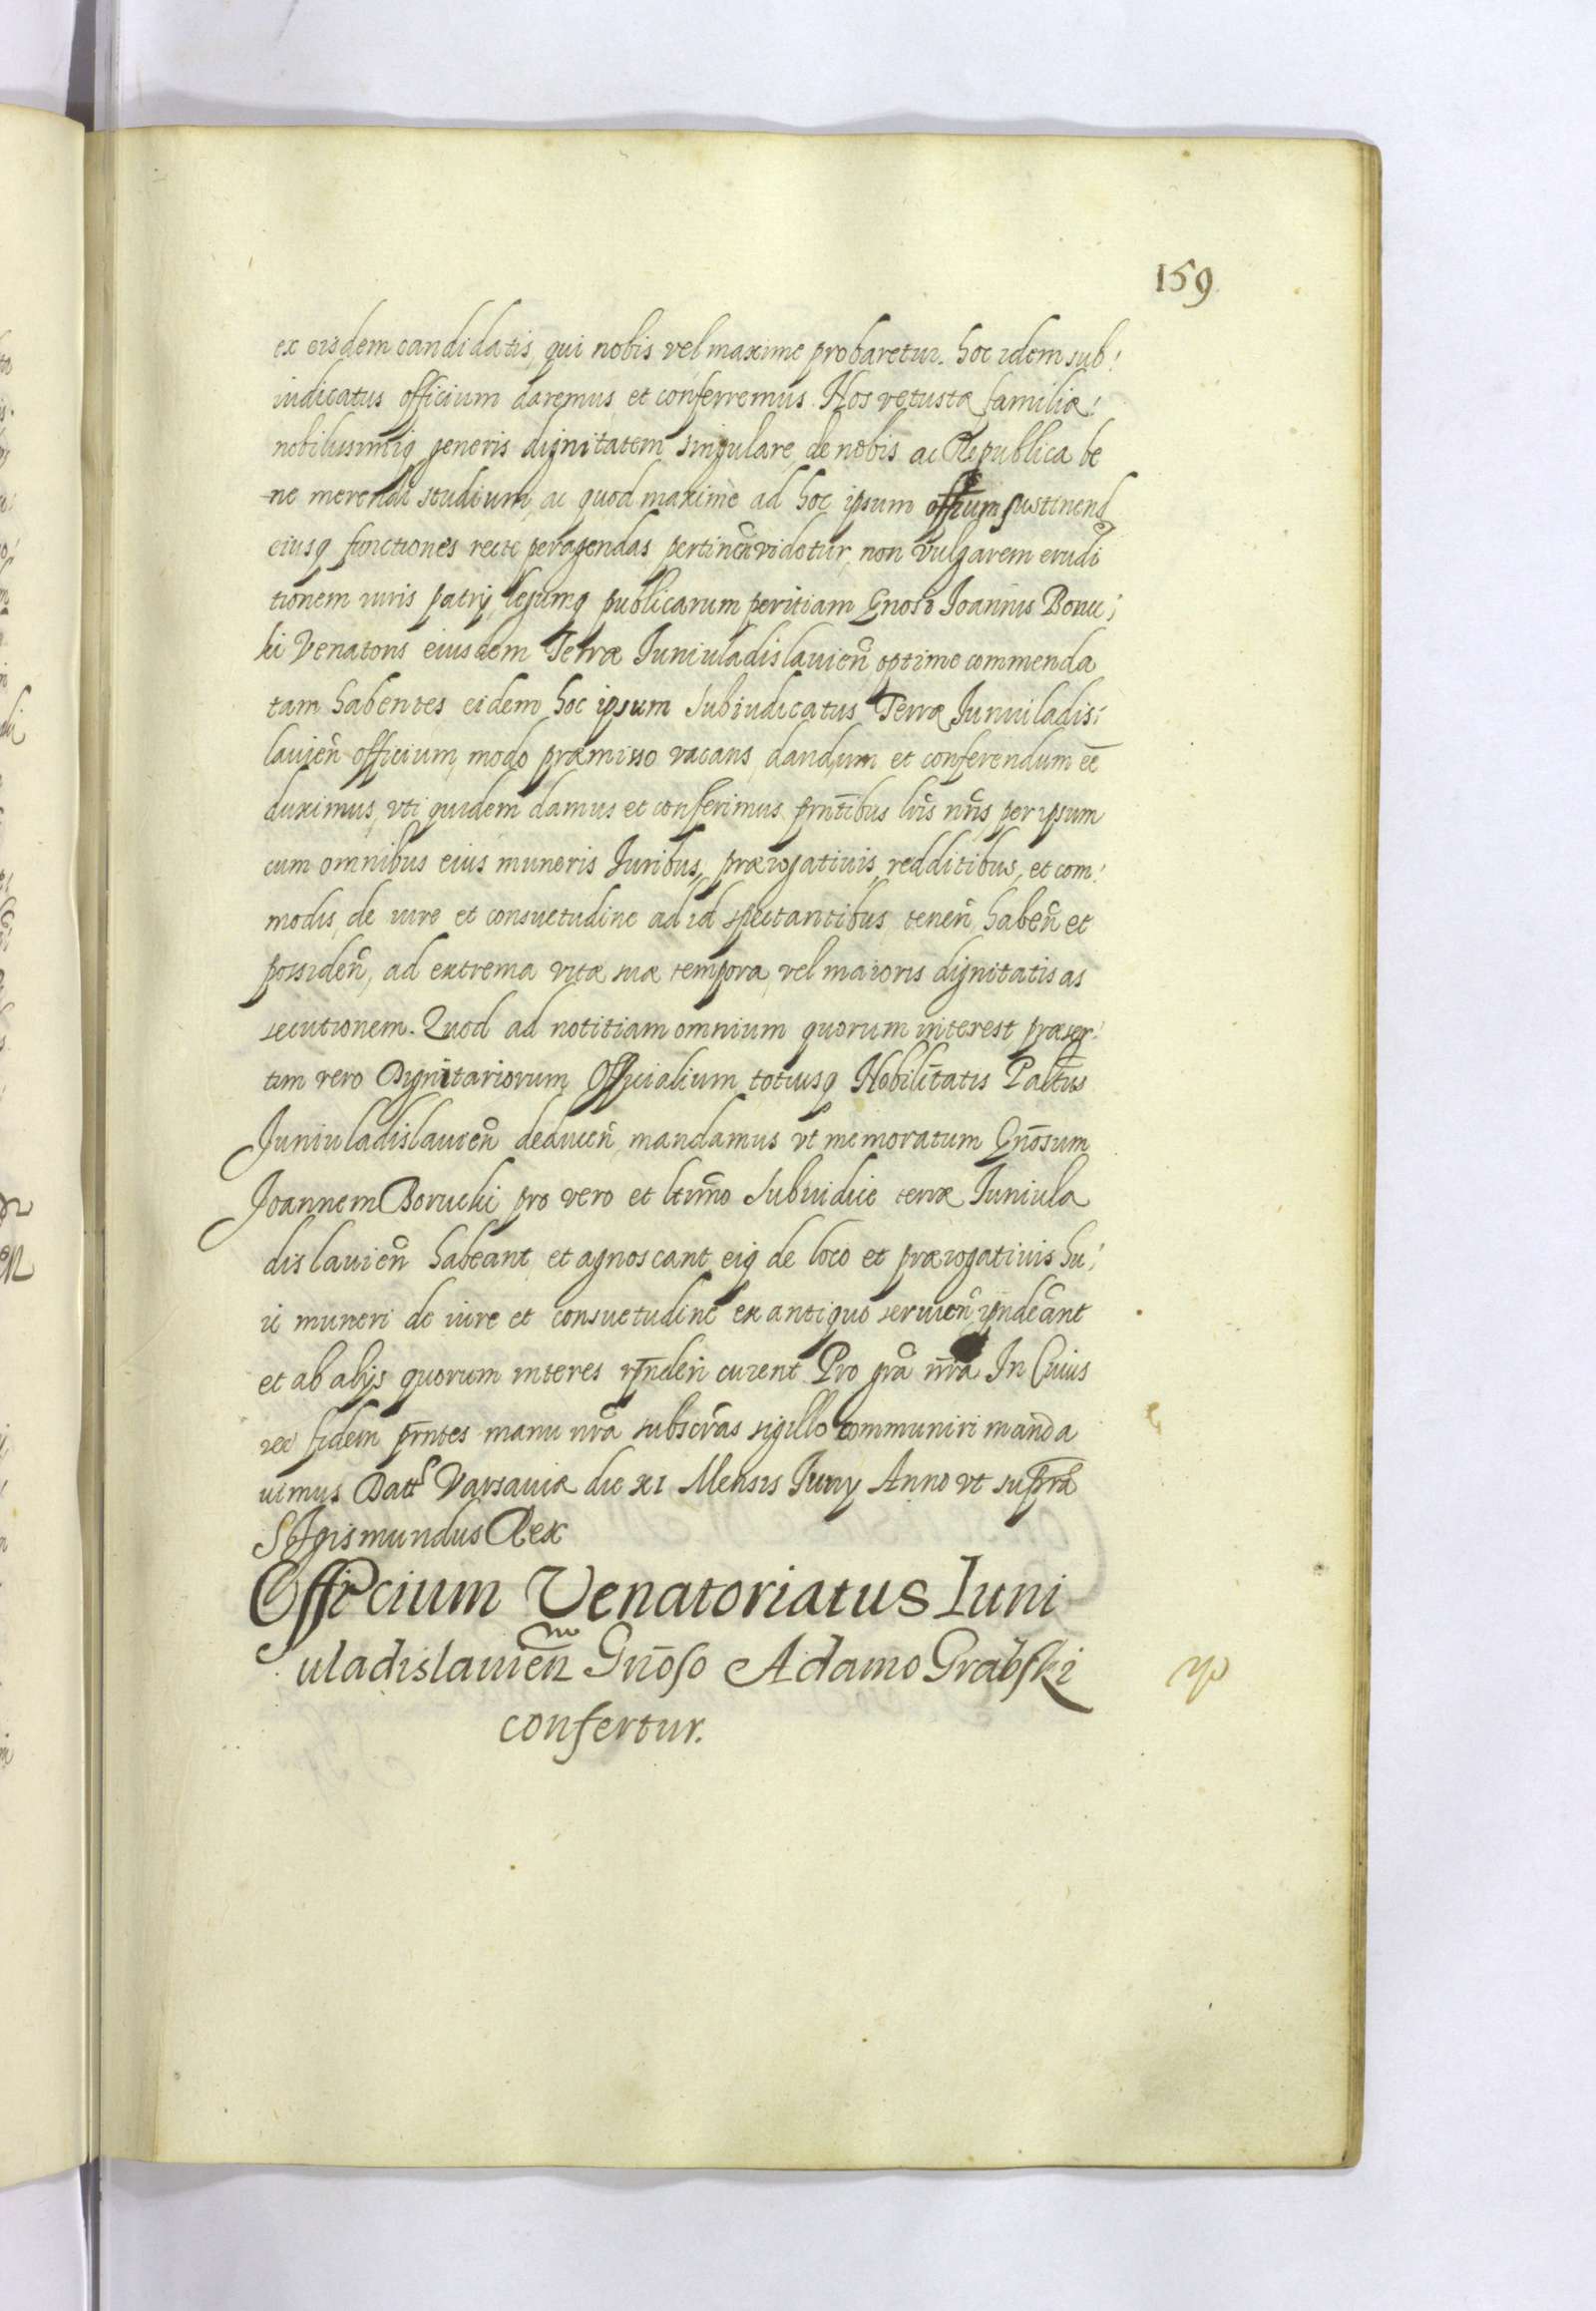 159
ex eisdem candidatis, qui nobis vel maxime probaretur. hoc idem sub:
iudicatus officium daremus et conferremus. Nos vetustæ familiæ:
nobilissimiq generis dignitatem singulare, de nobis ac Republica be
ne merendi studium, ac quod maxime ad hoc ipsum offium sustinend
eiusq functiones recte peragendas pertinen̄ videtur, non vulgarem erudi
tionem iuris patrij, legumq publicarum peritiam Gnosi Joannis Boruc:
ki Venatoris eiusdem Terræ Iuniuladislauien̄ optime commenda
tam habentes eidem hoc ipsum Subiudicatus Terræ Iuniuladis:
lauien̄ officium, modo præmisso vacans, dandum et conferendum ee̅
duximus, vti quidem damus et conferimus prn̄tibus lris nr̄is per ipsum
cum omnibus eius muneris Iuribus, prærogatiuis, redditibus, et com:
modis, de iure et consuetudine ad id spectantibus, tenen̄, haben̄ et
possiden̄, ad extrema vitæ suæ tempora, vel maioris dignitatis as
secutionem. Quod ad notitiam omnium quorum interest præser:
tim vero Dignitariorum Officialium totiusq Nobilitatis Paltus
Iuniuladislauien̄ deducen̄, mandamus vt memoratum Gnōsum
Joannem Borucki pro vero et ltimo Subiudice terræ Iuniula
dislauien̄ habeant, et agnoscant eiq de loco et prærogatiuis hu:
ic muneri de iure et consuetudine ex antiquo seruien̄, rn̄deant
et ab alijs quorum interes rn̄deri curent. Pro gra̅ nr̄a In Cuius
rei fidem prn̄tes manu nr̄a subscras sigillo communiri manda
uimus Datt Varsauiæ die XI Mensis Iunÿ Anno vt supra
Sigismundus Rex
Officium Venatoriatus Iuni
uladislauien̄ Gnōso Adamo Grabski
confertur.